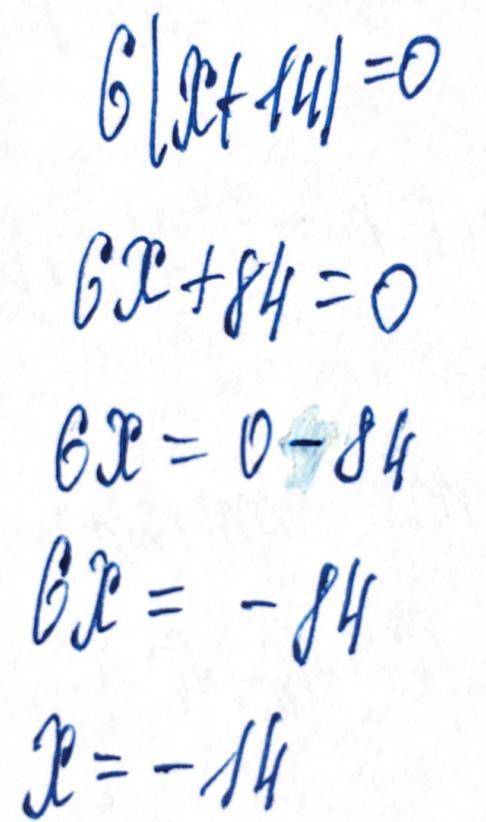 6(x+14)=0
6x+84=0
6x=0-84
6x=-84
x=-14